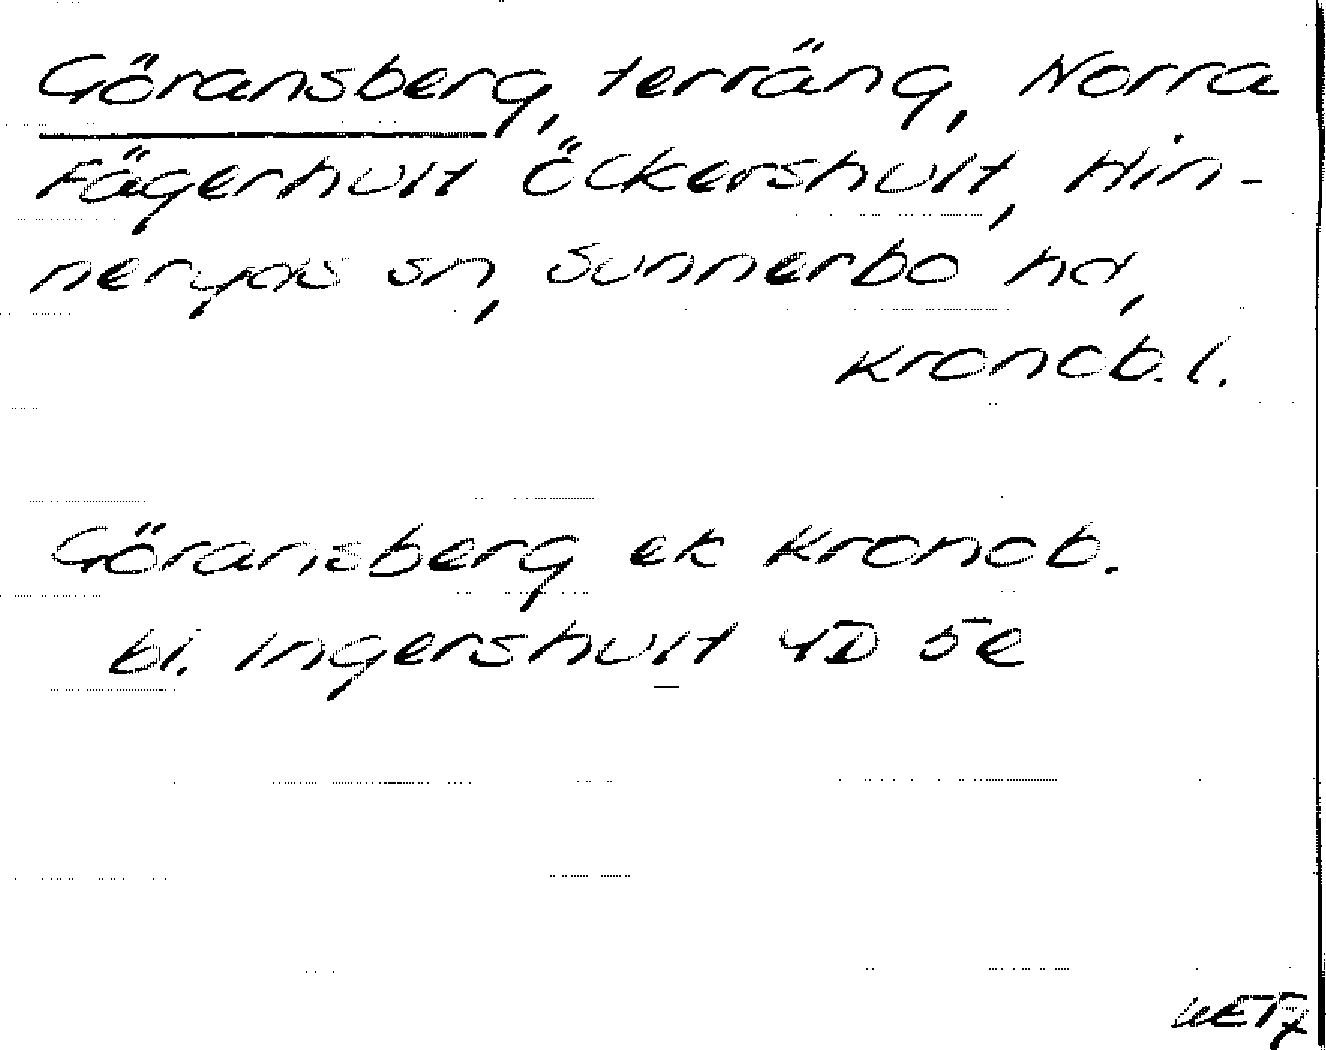 Göransberg, terräng, Norra
Fägerhult Öckershult, Hin-
neryds sn, Sunnerbo hd,
Kronob. l.
Göransberg ek Kronob.
bl. Ingershult 4D 5e